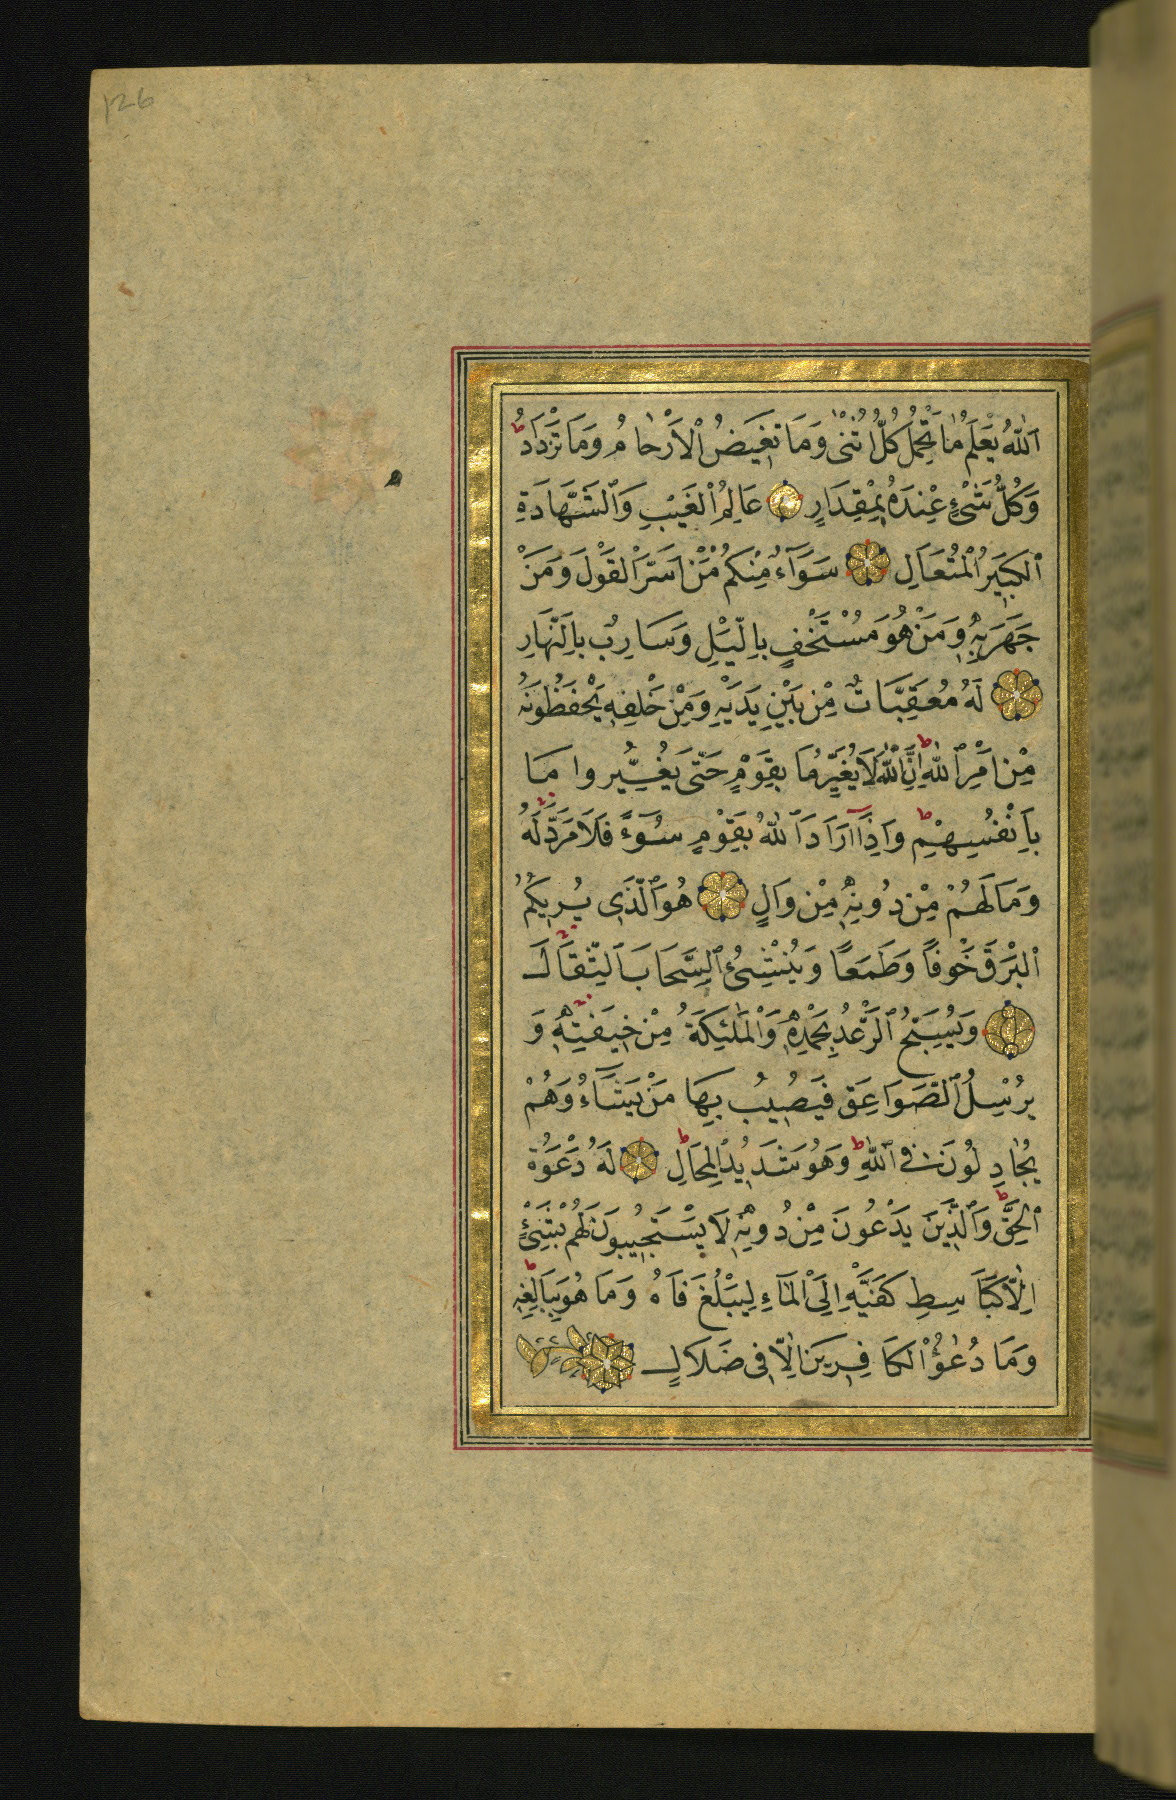 126
اَللّٰهُ يَعْلَمُ مَا تَحْمِلُ كُلُّ اُنْثٰى وَمَا تَغِيضُ الْاَرْحَامُ وَمَا تَزْدَادُ ط
وَكُلُّ شَىْءٍ عِنْدَهُ بِمِقْدَارٍ عَالِمُ الْغَيْبِ وَالشَّهَادَةِ
الْكَبِيرُ الْمُتَعَالِ سَوَآءٌ مِنْكُمْ مَنْ اَسَرَّ الْقَوْلَ وَمَنْ
جَهَرَ بِهِ وَمَنْ هُوَ مُسْتَخْفٍ بِالَّيْلِ وَسَارِبٌ بِالنَّهَارِ
لَهُ مُعَقِّبَاتٌ مِنْ بَيْنِ يَدَيْهِ وَمِنْ خَلْفِهِ يَحْفَظُونَهُ
مِنْ اَمْرِ اللّٰهِ ط اِنَّ اللّٰهَ لَا يُغَيِّرُ مَا بِقَوْمٍ حَتّٰى يُغَيِّرُوا مَا
بِاَنْفُسِهِمْ ط وَاِذَآ اَرَادَ اللّٰهُ بِقَوْمٍ سُوٓءًا فَلَا مَرَدَّ لَهُ
وَمَا لَهُمْ مِنْ دُونِهِ مِنْ وَالٍ هُوَ الَّذِى يُرِيكُمُ
الْبَرْقَ خَوْفًا وَطَمَعًا وَيُنْشِئُ السَّحَابَ الثِّقَالَ
وَيُسَبِّحُ الرَّعْدُ بِحَمْدِهِ وَالْمَلٰئِكَةُ مِنْ خِيفَتِهِ وَ
يُرْسِلُ الصَّوَاعِقَ فَيُصِيبُ بِهَا مَنْ يَشَآءُ وَهُمْ
يُجَادِلُونَ فِى اللّٰهِ ط وَهُوَ شَدِيدُ الْمِحَالِ ط لَهُ دَعْوَةُ
الْحَقِّ ط وَالَّذِينَ يَدْعُونَ مِنْ دُونِهِ لَا يَسْتَجِيبُونَ لَهُمْ بِشَىْءٍ
اِلَّا كَبَاسِطِ كَفَّيْهِ اِلَى الْمَآءِ لِيَبْلُغَ فَاهُ وَمَا هُوَ بِبَالِغِهِ ط
وَمَا دُعٰٓؤُ الْكَافِرِينَ اِلَّا فِى ضَلَالٍ